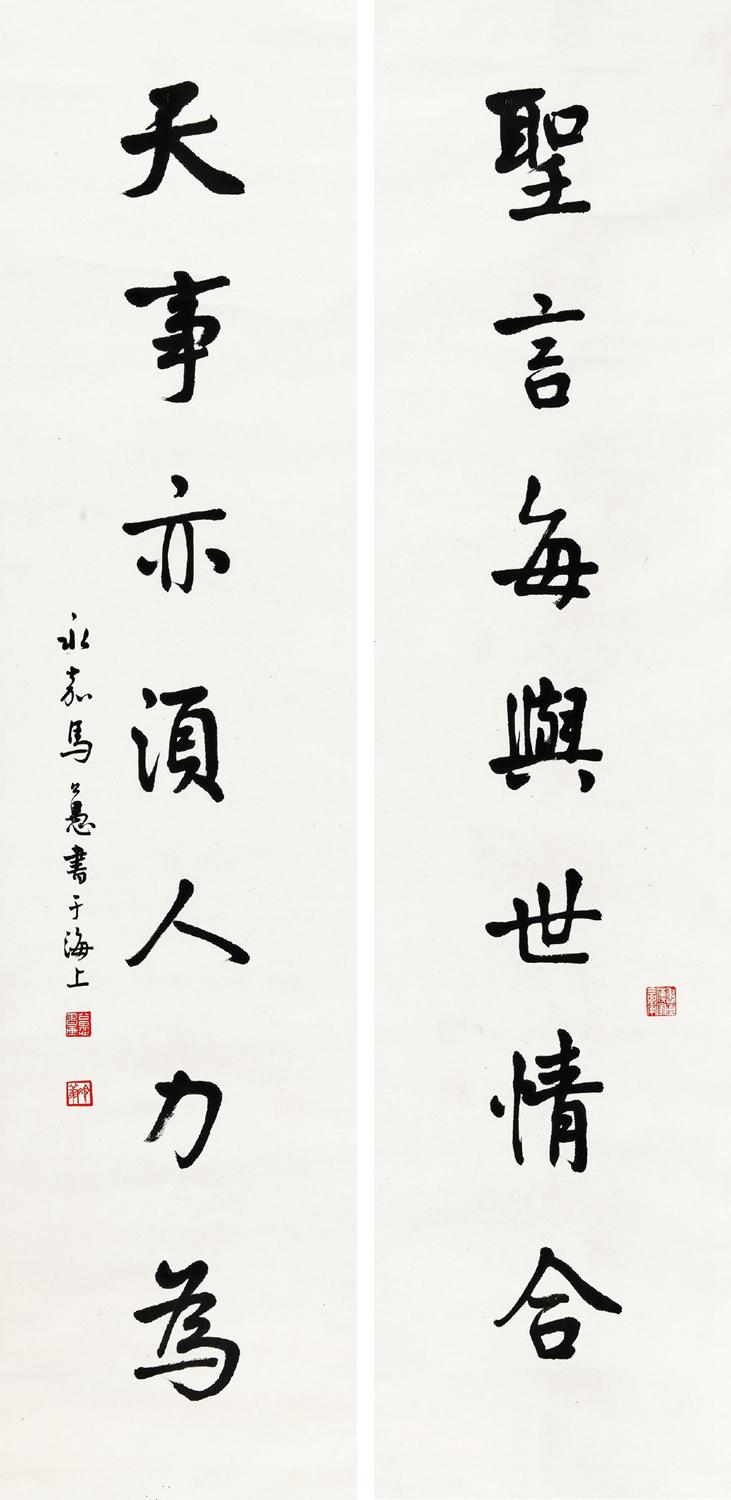 聖言每與世情合
天事亦須人力為
永嘉馬公愚書于海上